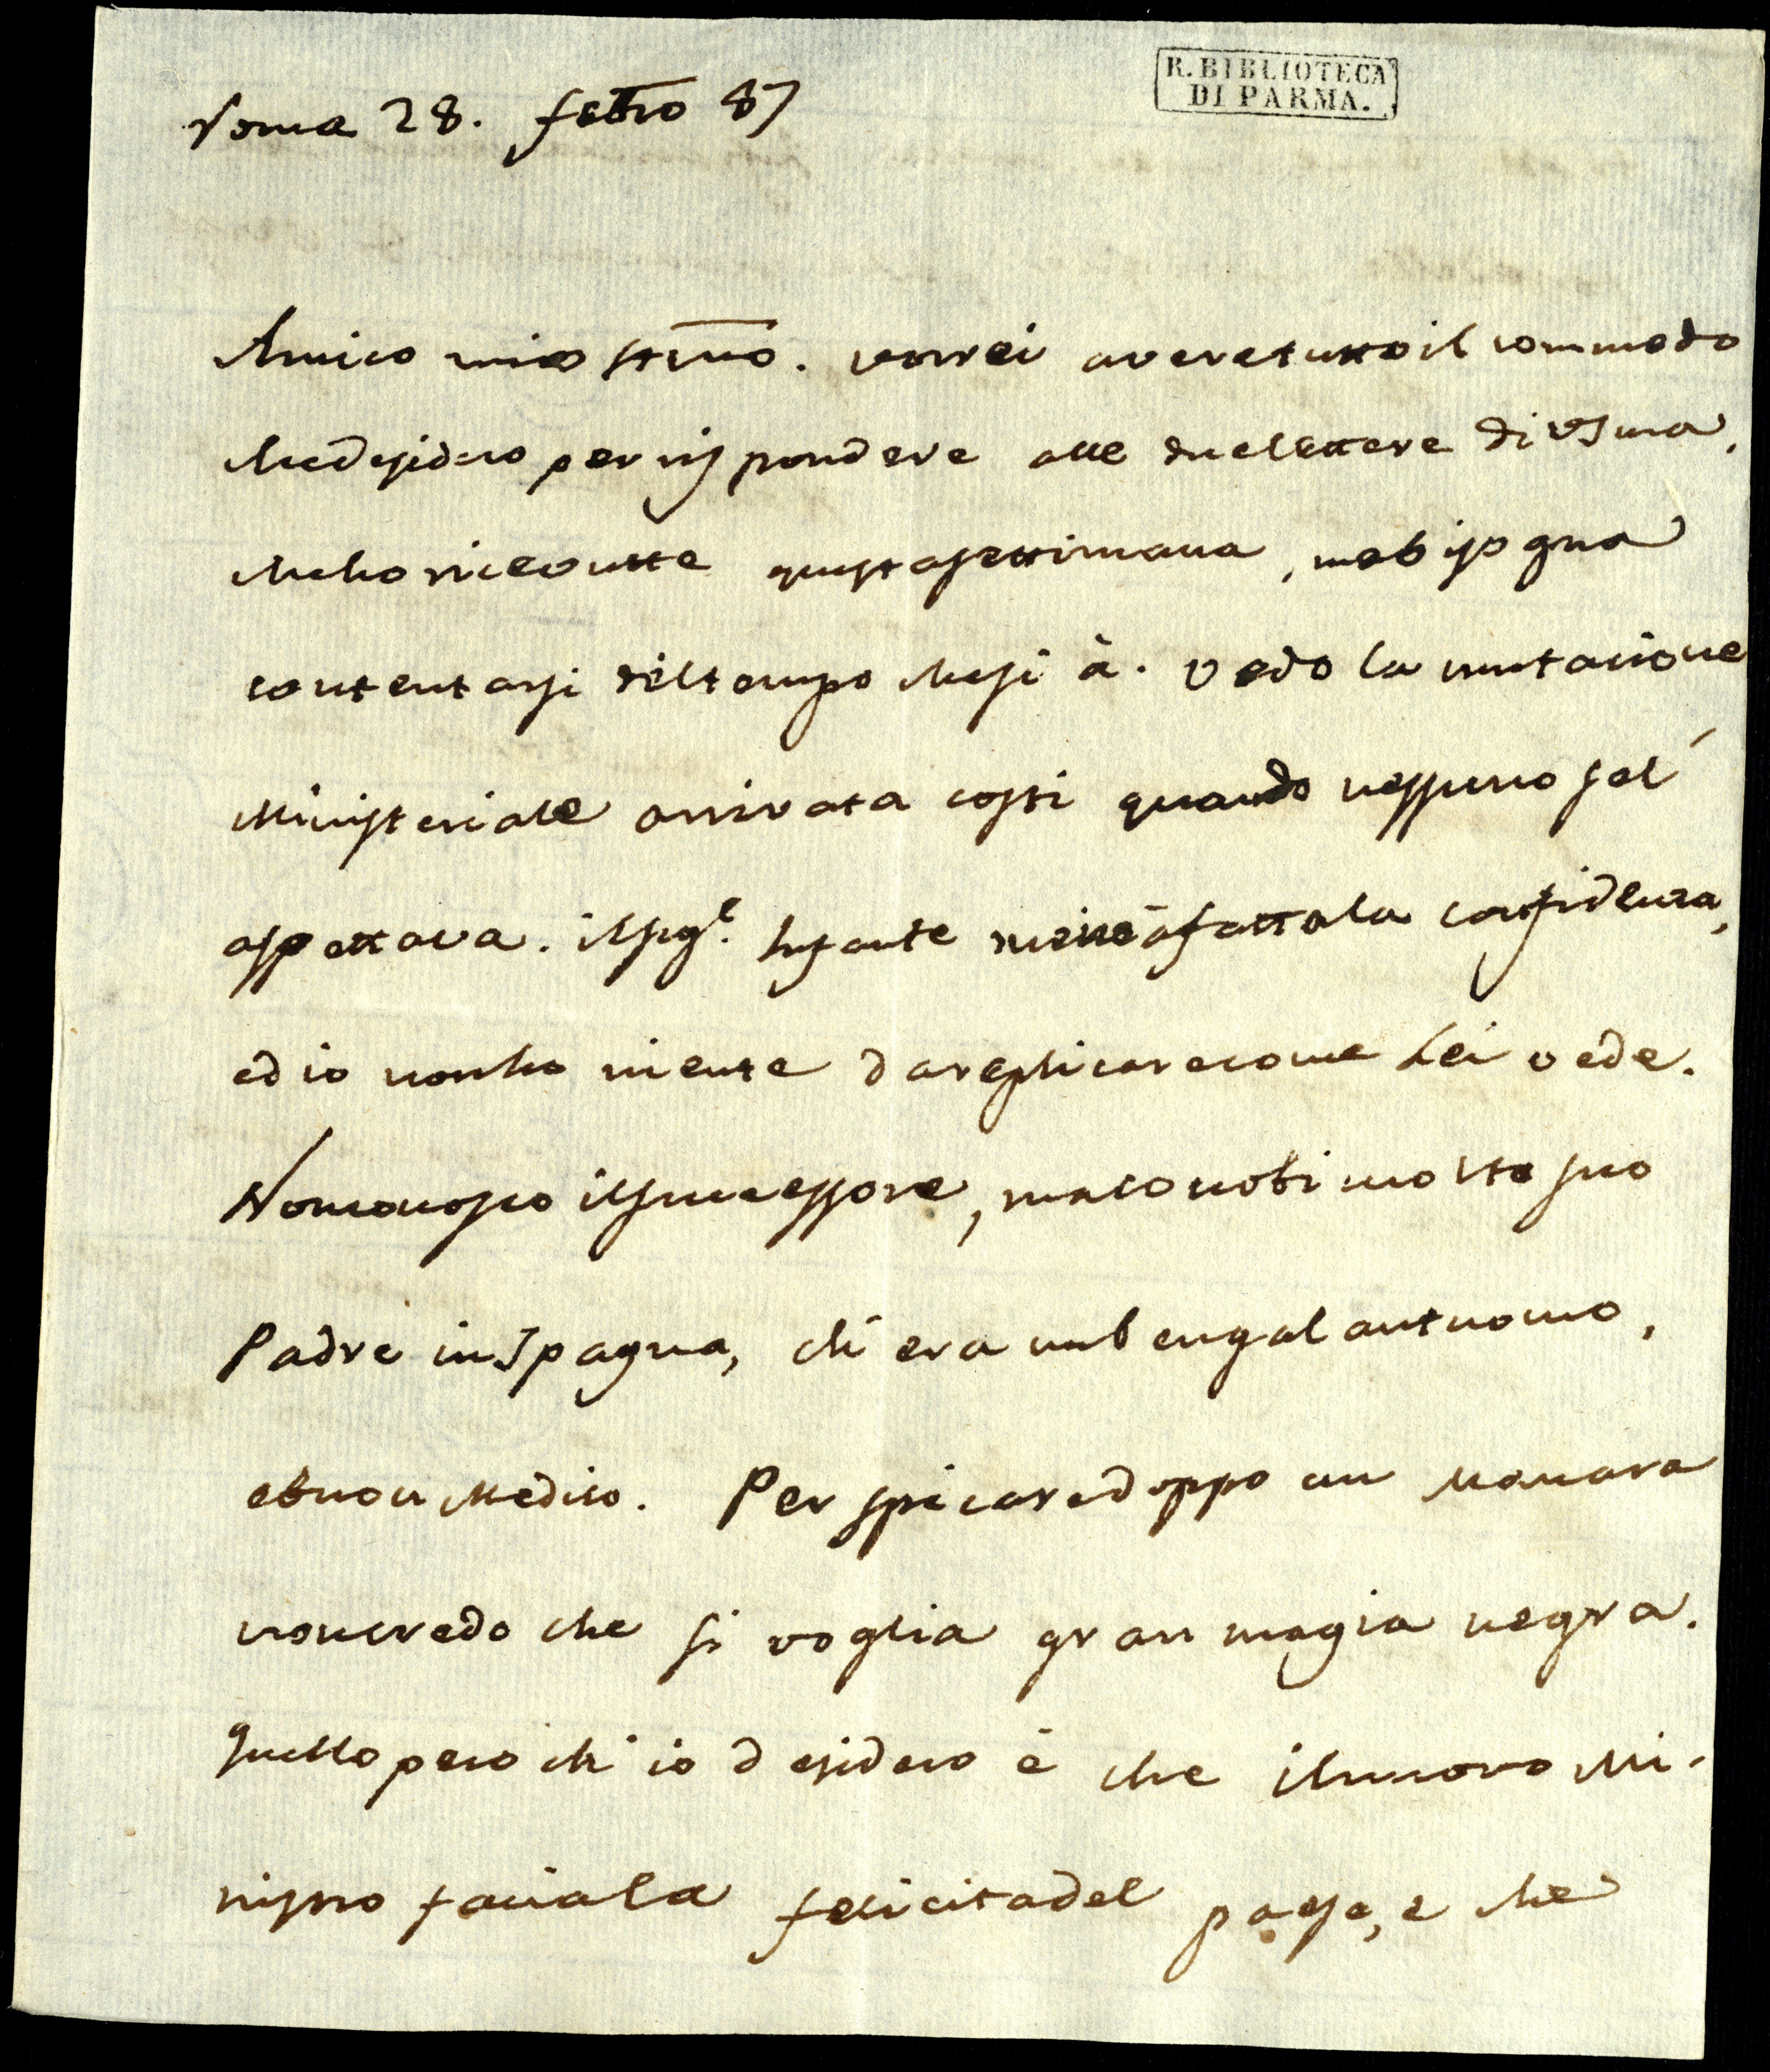 R. BIBLIOTECA
DI PARMA.
Roma 28. febro 87
Amico mio stimo. vorrei avere tutto il commodo
che desidero per rispondere alle due lettere di VS ma,
che ho ricevutte questa settimana, ma bisogna
contentarsi del tempo che si à. Vedo la mutacione
Ministeriale arrivata costi quando nessuno sel'
aspettava. il sigr. Infante me ne à fatto la confidenza,
ed io non ho niente da replicare come Lei vede.
Non conosco il successore, ma conobi molto suo
Padre in Spagna, ch'era un ben galantuomo,
e buon Medico. Per spicare doppo un Manara
non credo che si voglia gran magia negra.
quello pero ch'io desidero è che il nuovo Mi-
nistro facia la felicita del paese, e che